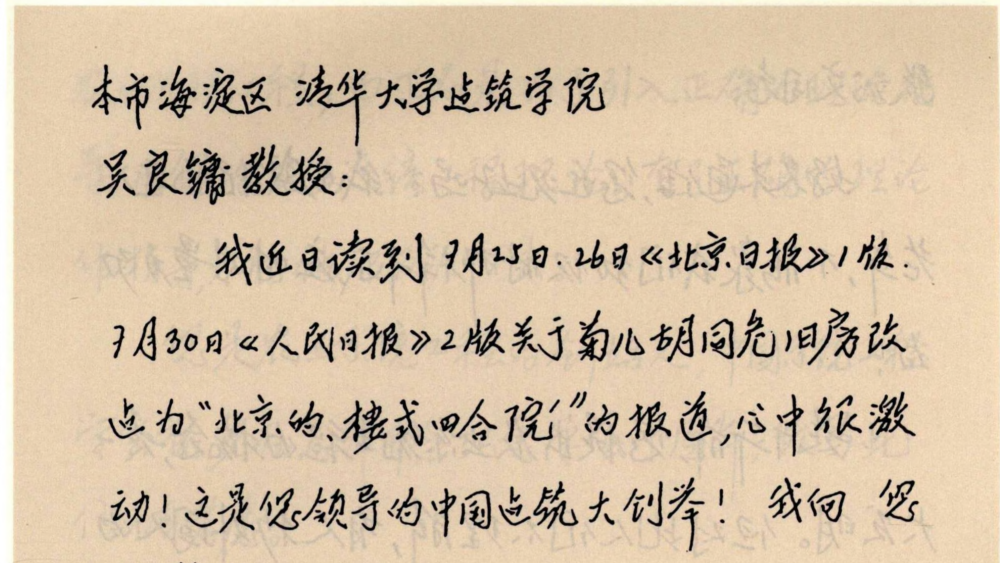 本市海淀区 清华大学建筑学院
吴良镛教授：
我近日读到7月25日.26日《北京日报》1版.
7月30日《人民日报》2版关于菊儿胡同危旧房改
建为“北京的、楼式四合院”的报道,心中很激
动!这是您领导的中国建筑大创举! 我向 您